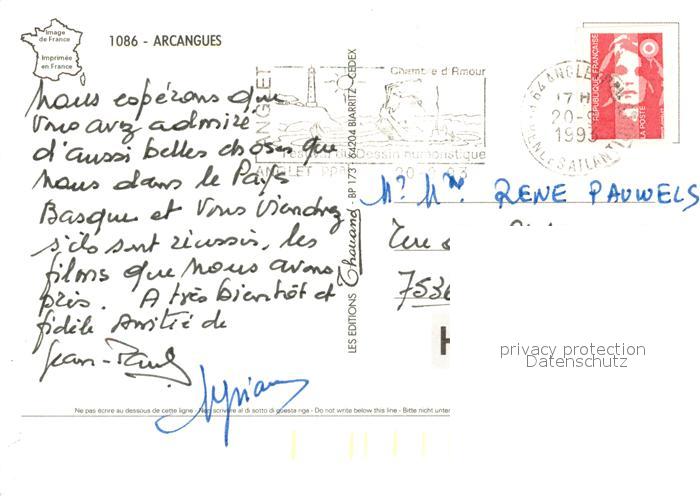 Image
de France
Imprimée
en France
1086 - ARCANGUES
nous espérons que
vous avez admiré
d'aussi belles choses que
nous dans le Pays
Basque et vous viendrez
s'ils sont réussis, les
films que nous avons
pris. A très bientôt et
fidèle amitié de
Jean-Paul
LES EDITIONS Thouand - BP 173 - 64204 BIARRITZ-CEDEX
ANGLET
Chambre d'Amour
Dessin humoristique
ANGLET PPAL
17 H
20-
1993
REPUBLIQUE FRANÇAISE
LA POSTE
Mr Mme RENE PAUWELS
7536
H
privacy protection
Datenschutz
Ne pas écrire au dessous de cette ligne - Non scrivere al di sotto di questa riga - Do not write below this line - Bitte nicht unter